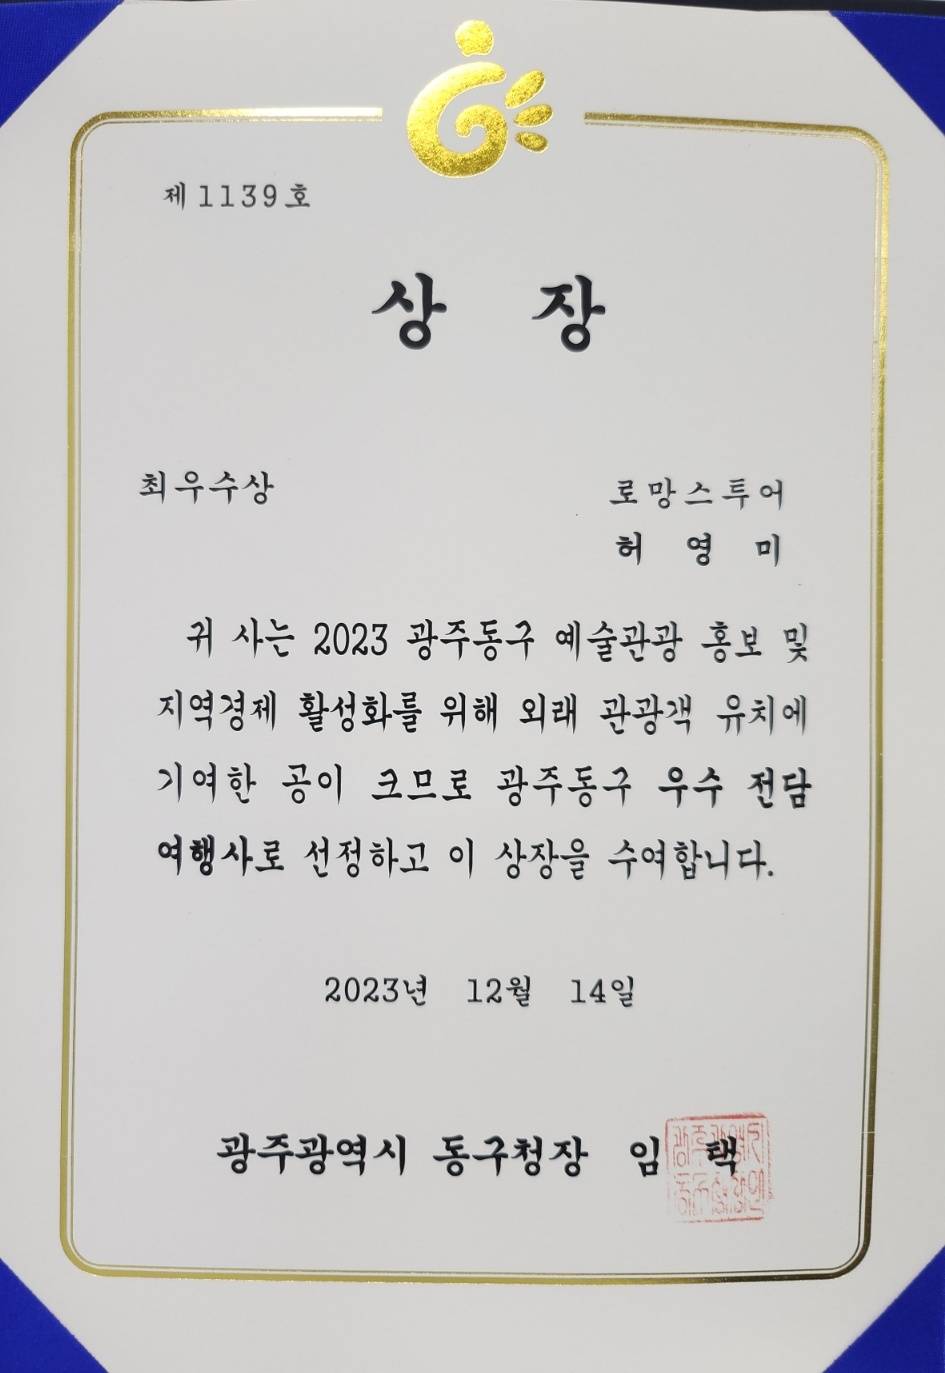 제 1139 호
상 장
최우수상
로망스투어
허 영 미
귀 사는 2023 광주동구 예술관광 홍보 및
지역경제 활성화를 위해 외래 관광객 유치에
기여한 공이 크므로 광주동구 우수 전담
여행사로 선정하고 이 상장을 수여합니다.
2023년 12월 14일
광주광역시 동구청장 임 택